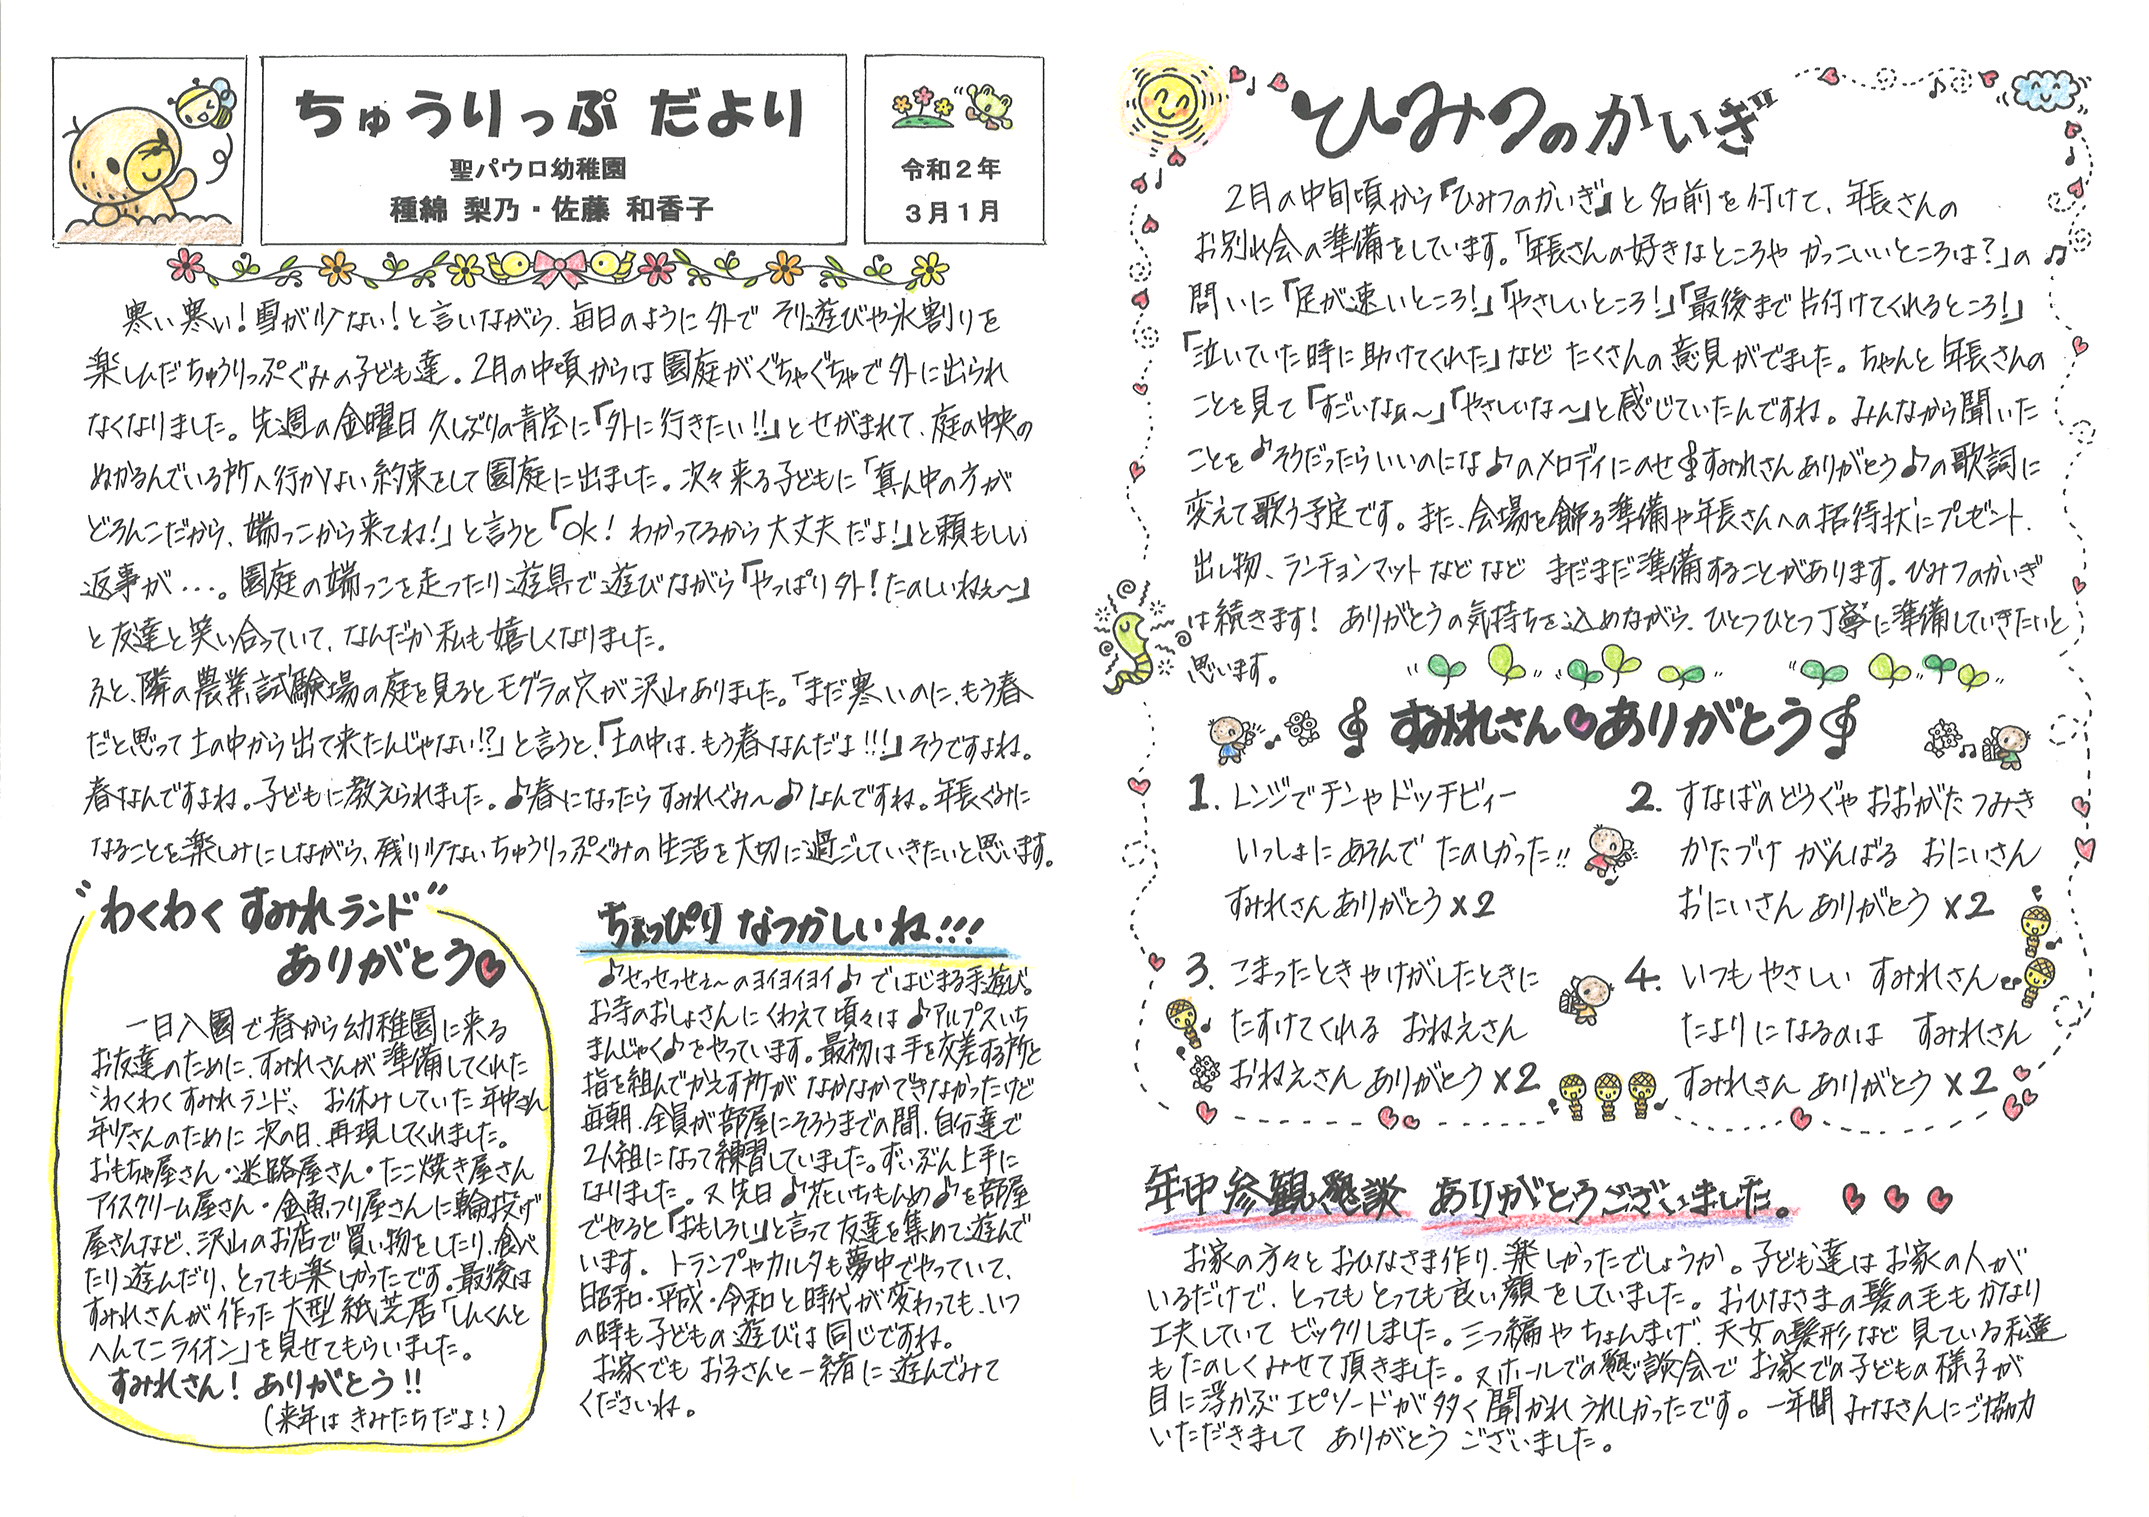 ちゅうりっぷ だより
聖パウロ幼稚園
種綿 梨乃・佐藤 和香子
令和2年
3月1月
寒い寒い!雪が少ない!と言いながら、毎日のように外で そり遊びや氷割りを
楽しんだちゅうりっぷぐみの子ども達。2月の中頃からは園庭がぐちゃぐちゃで外に出られ
なくなりました。先週の金曜日 久しぶりの青空に「外に行きたい!!」とせがまれて、庭の中央の
ぬかるんでいる所へ行かない約束をして園庭に出ました。次々来る子どもに「真ん中の方が
どろんこだから、端っこから来てね!」と言うと「OK! わかってるから大丈夫だよ!」と頼もしい
返事が・・・。園庭の端っこを走ったり遊具で遊びながら「やっぱり外!たのしいねぇ〜」
と友達と笑い合っていて、なんだか私も嬉しくなりました。
ふと、隣の農業試験場の庭を見るとモグラの穴が沢山ありました。「まだ寒いのに、もう春
だと思って土の中から出て来たんじゃない!?」と言うと、「土の中は、もう春なんだよ!!!」そうですよね。
春なんですよね。子どもに教えられました。♪春になったらすみれぐみ〜♪なんですね。年長ぐみに
なることを楽しみにしながら、残り少ないちゅうりっぷぐみの生活を大切に過ごしていきたいと思います。
"わくわく すみれランド"
ありがとう♥
一日入園で春から幼稚園に来る
お友達のために、すみれさんが準備してくれた
"わくわくすみれランド" お休みしていた年中さん
年少さんのために次の日、再現してくれました。
おもちゃ屋さん・迷路屋さん・たこ焼き屋さん
アイスクリーム屋さん・金魚つり屋さんに輪投げ
屋さんなど、沢山のお店で買い物をしたり、食べ
たり遊んだり、とっても楽しかったです。最後は
すみれさんが作った大型紙芝居「しんくんと
へんてこライオン」を見せてもらいました。
すみれさん! ありがとう!!
(来年は きみたちだよ!)
ちょっぴり なつかしいね!!!
♪せっせっせぇ〜のヨイヨイヨイ♪ではじまる手遊び。
お寺のおしょさんにくわえて頃々は♪アルプスいち
まんじゃく♪をやっています。最初は手を交差する所と
指を組んでかえす所がなかなかできなかったけど
毎朝、全員が部屋にそろうまでの間、自分達で
2人組になって練習していました。ずいぶん上手に
なりました。又先日♪花いちもんめ♪を部屋
でやると「おもしろい」と言って友達を集めて遊んで
います。トランプやカルタも夢中でやっていて、
昭和・平成・令和と時代が変わっても、いつ
の時も子どもの遊びは同じですね。
お家でもお子さんと一緒に遊んでみて
くださいね。
ひみつのかいぎ
2月の中旬頃から「ひみつのかいぎ」と名前を付けて、年長さんの
お別れ会の準備をしています。「年長さんの好きなところや かっこいいところは?」の
問いに「足が速いところ!」「やさしいところ!」「最後まで片付けてくれるところ!」
「泣いていた時に助けてくれた」など たくさんの意見がでました。ちゃんと年長さんの
ことを見て「すごいなぁ〜」「やさしいな〜」と感じていたんですね。みんなから聞いた
ことを♪そうだったらいいのにな♪のメロディにのせ𝄞すみれさんありがとう♪の歌詞に
変えて歌う予定です。また、会場を飾る準備や年長さんへの招待状にプレゼント、
出し物、ランチョンマットなどなど まだまだ準備することがあります。ひみつのかいぎ
は続きます! ありがとうの気持ちを込めながら、ひとつひとつ丁寧に準備していきたいと
思います。
𝄞すみれさん♥ありがとう𝄞
1. レンジでチンやドッチビィー
いっしょにあそんで たのしかった!!
すみれさんありがとう×2
2. すなばのどうぐや おおがたつみき
かたづけ がんばる おにいさん
おにいさん ありがとう ×2
3. こまったときやけがしたときに
たすけてくれる おねえさん
おねえさん ありがとう×2
4. いつもやさしい すみれさん
たよりになるのは すみれさん
すみれさん ありがとう×2
年中参観懇談 ありがとうございました。
お家の方々と おひなさま作り、楽しかったでしょうか。子ども達は お家の人が
いるだけで、とってもとっても良い顔をしていました。おひなさまの髪の毛もかなり
工夫していて ビックリしました。三つ編やちょんまげ、天女の髪形など 見ている私達
もたのしくみせて頂きました。又ホールでの懇談会で お家での子どもの様子が
目に浮かぶエピソードが多く聞かれ うれしかったです。一年間 みなさんにご協力
いただきまして ありがとう ございました。